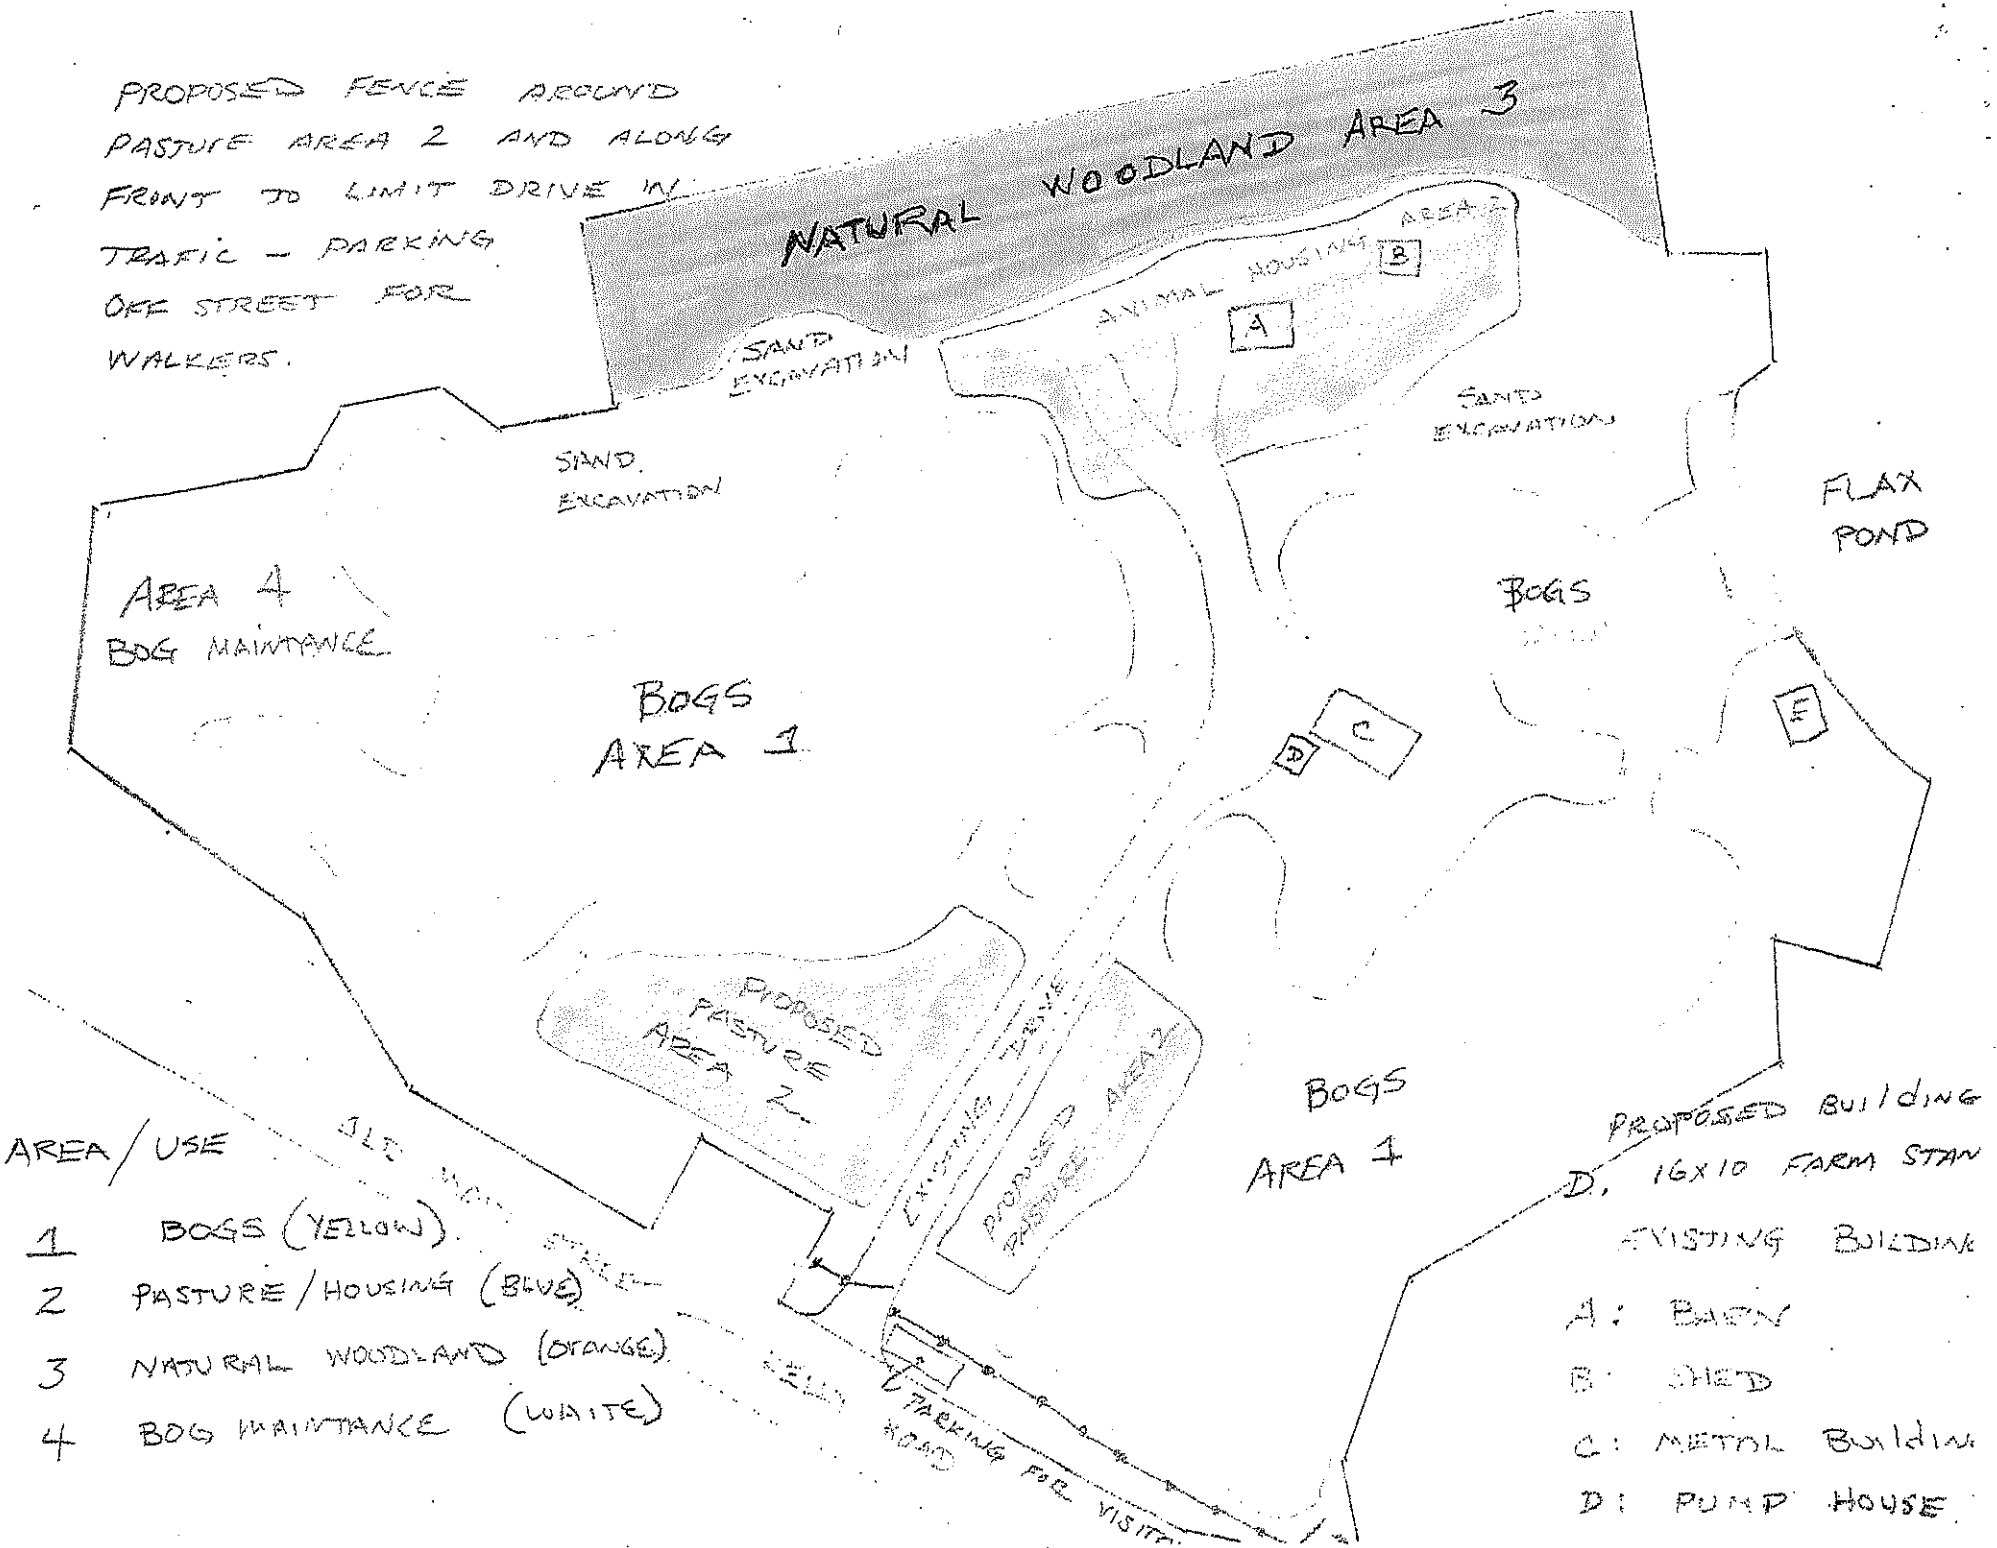 PROPOSED FENCE AROUND
PASTURE AREA 2 AND ALONG
FRONT TO LIMIT DRIVE IN
TRAFIC – PARKING
OFF STREET FOR
WALKERS.
NATURAL WOODLAND AREA 3
ANIMAL HOUSING AREA 2
B
A
SAND
EXCAVATION
SAND
EXCAVATION
SAND.
EXCAVATION
FLAX
POND
AREA 4
BOG MAINTANCE
BOGS
BOGS
AREA 1
C
D
E
PROPOSED
PASTURE
AREA 2
EXISTING DRIVE
PROPOSED
PASTURE AREA 2
BOGS
AREA 1
OLD MAIN STREET
KELLY
ROAD
PARKING FOR
AREA/USE
1 BOGS (YELLOW)
2 PASTURE/HOUSING (BLUE)
3 NATURAL WOODLAND (ORANGE)
4 BOG MAINTANCE (WHITE)
PROPOSED BUILDING
D. 16X10 FARM STAN
EXISTING BUILDIN
A: BARN
B: SHED
C: METAL BUildIN
D: PUMP HOUSE